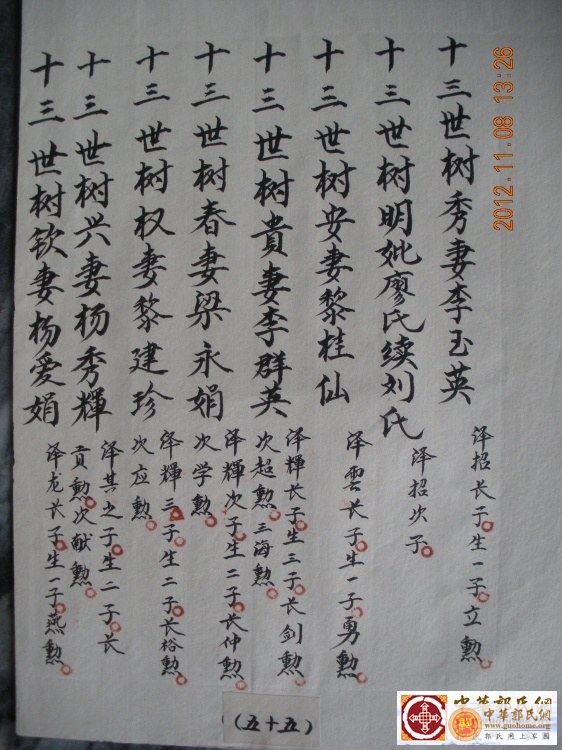 十三世树秀妻李玉英
泽招长子生一子立勲
十三世树明妣廖氏续刘氏
泽招次子
十三世树安妻黎桂仙
泽雲长子生一子勇勲
十三世树貴妻李群英
泽輝长子生三子长剑勲
次超勲三海勲
十三世树春妻梁永娟
泽輝次子生二子长仲勲
次学勲
十三世树权妻黎建珍
泽輝三子生二子长裕勲
次应勲
十三世树兴妻杨秀輝
泽其之子生二子长
贡勲次献勲
十三世树钦妻杨爱娟
泽龙长子生一子燕勲
(五十五)
2012.11.08 13:26
中華郭氏網
中華郭氏網
www.guohome.org
郭氏網上家園